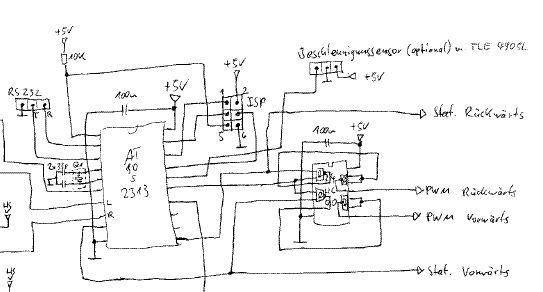 +5V
10K
RS232
T R
100n
+5V
+5V
1 2
ISP
5 6
Beschleunigungssensor (optional) m TLE 4905L
+5V
Stat. Rückwärts
100n
+5V
2x33p Q1
AT
90
S
2313
L
R
PWM Rückwärts
PWM Vorwärts
Stat. Vorwärts